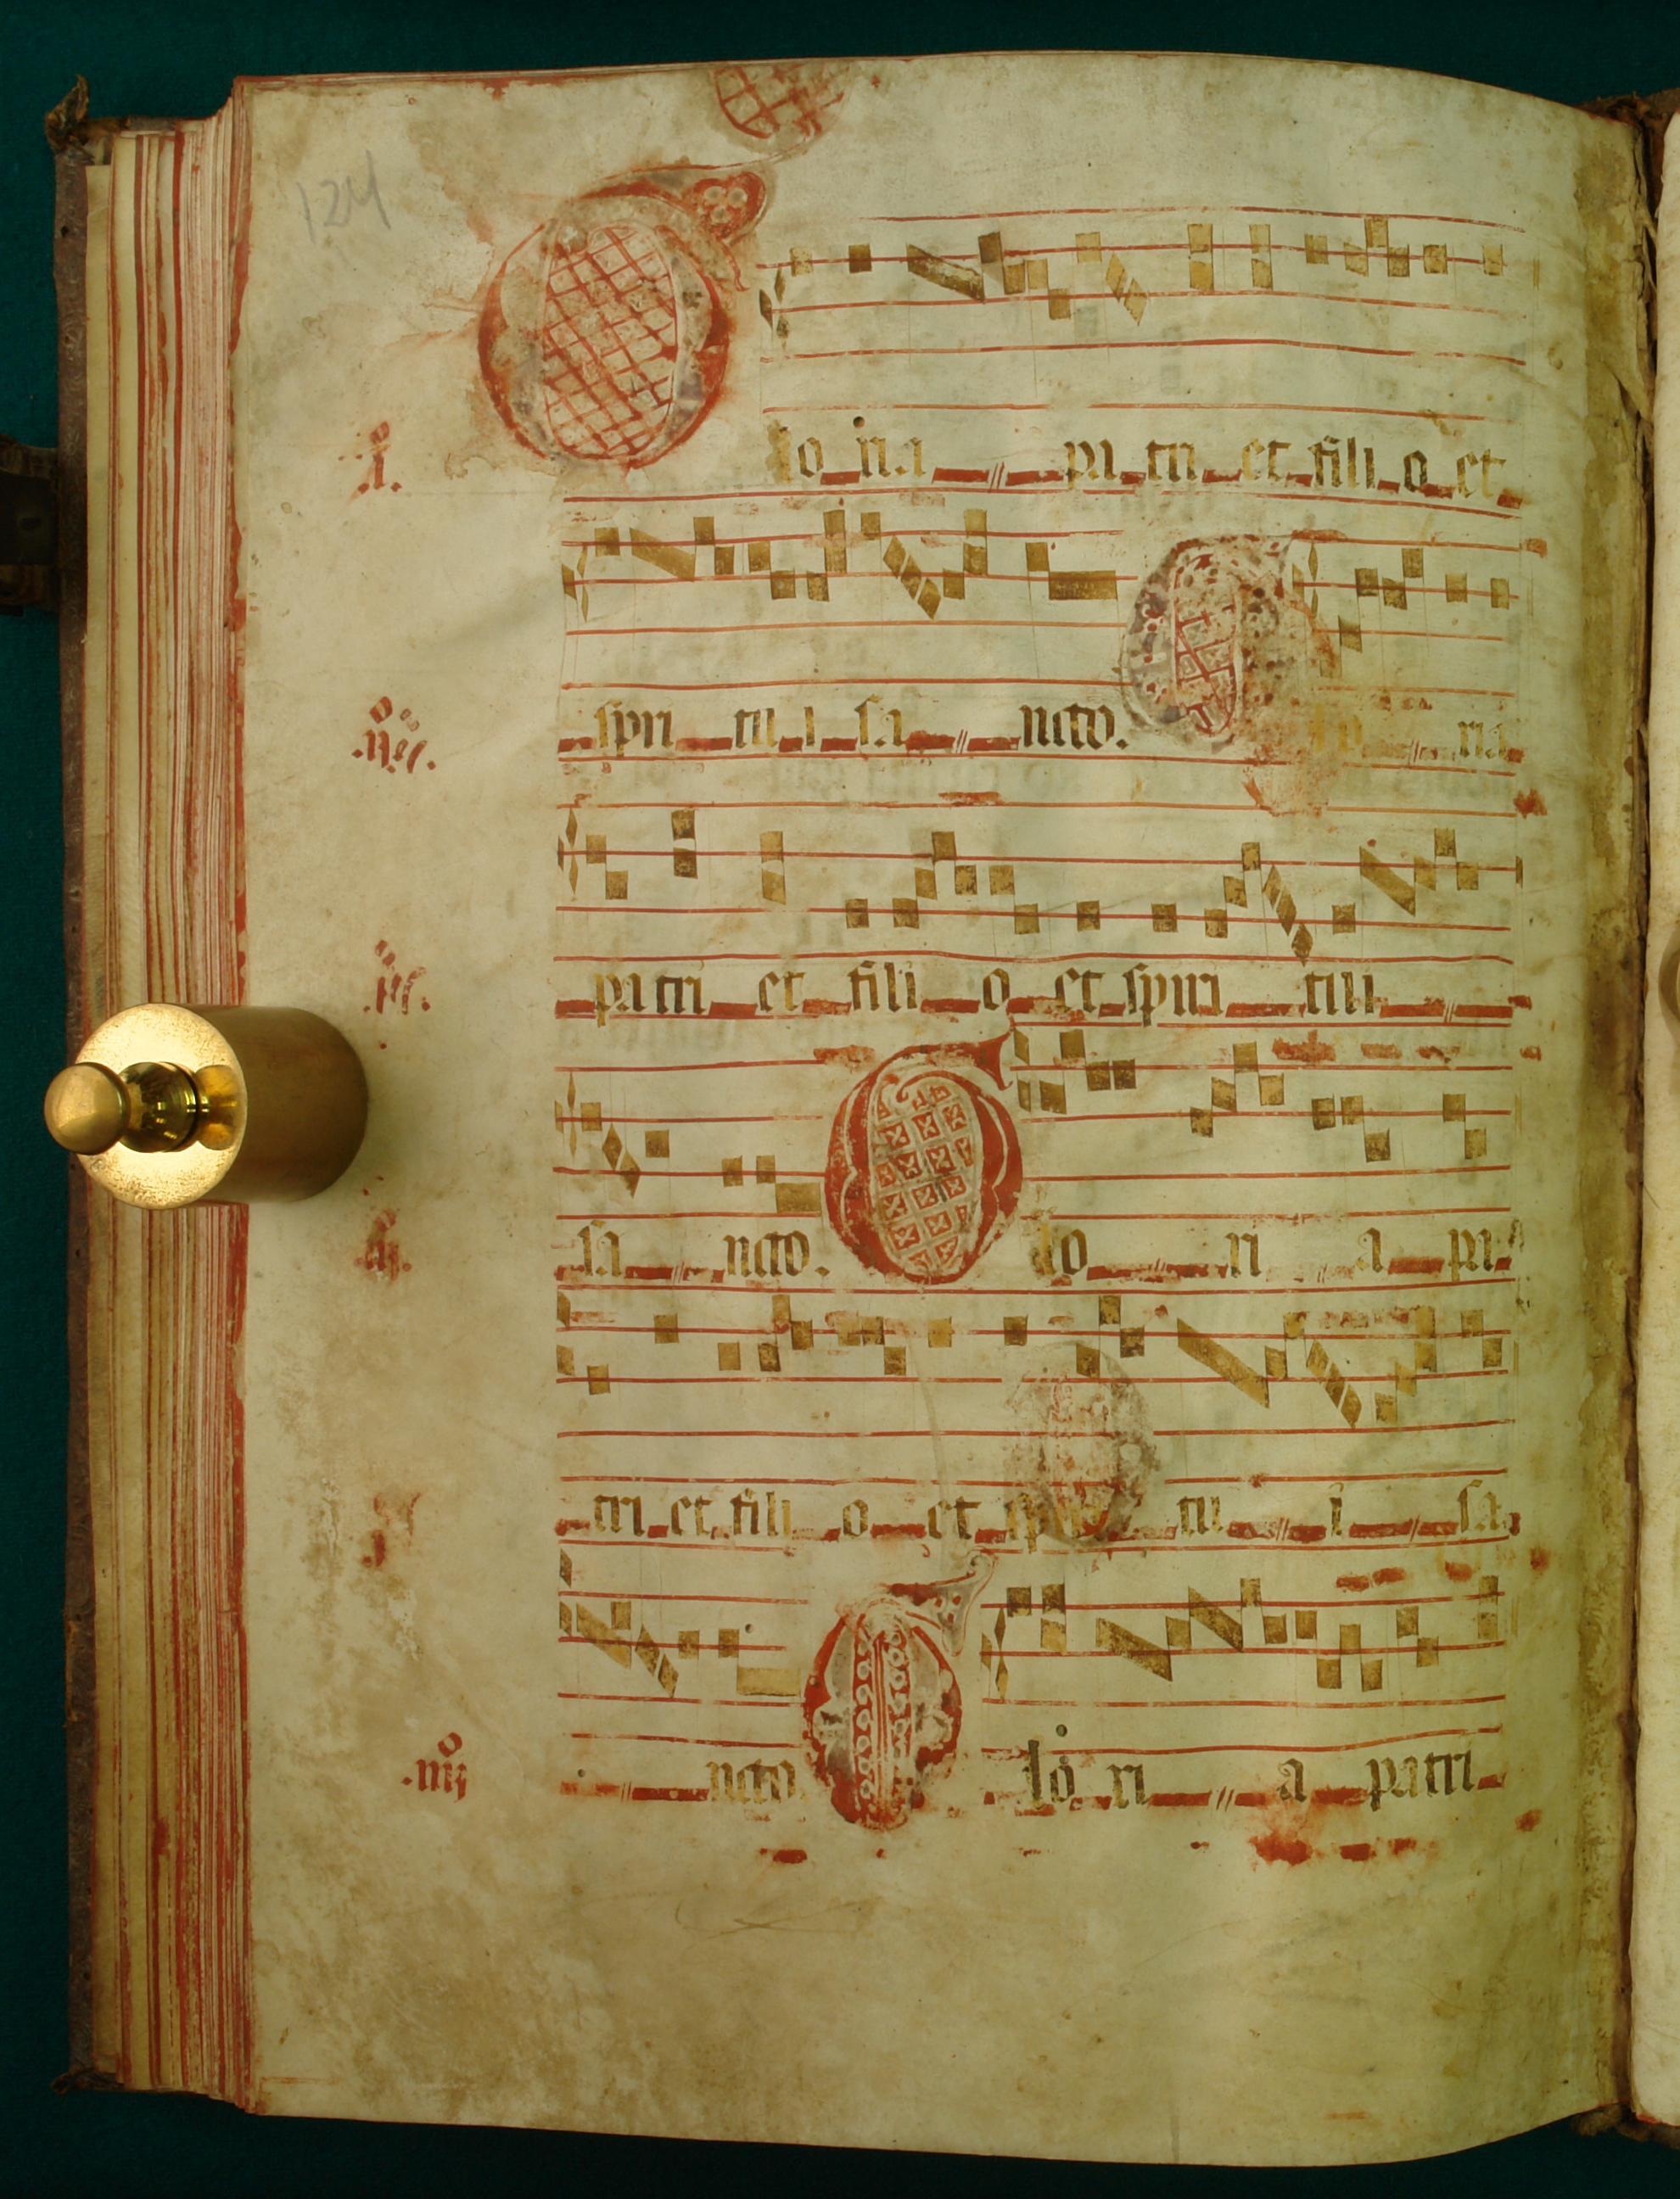 124
lo ria pa tri et fili o et
spri tu i sa ncto. lo ria
patri et fili o et spiri tui
sa ncto. lo ri a pa
tri et fili o et spiri tu i sa
ncto. lo ri a patri